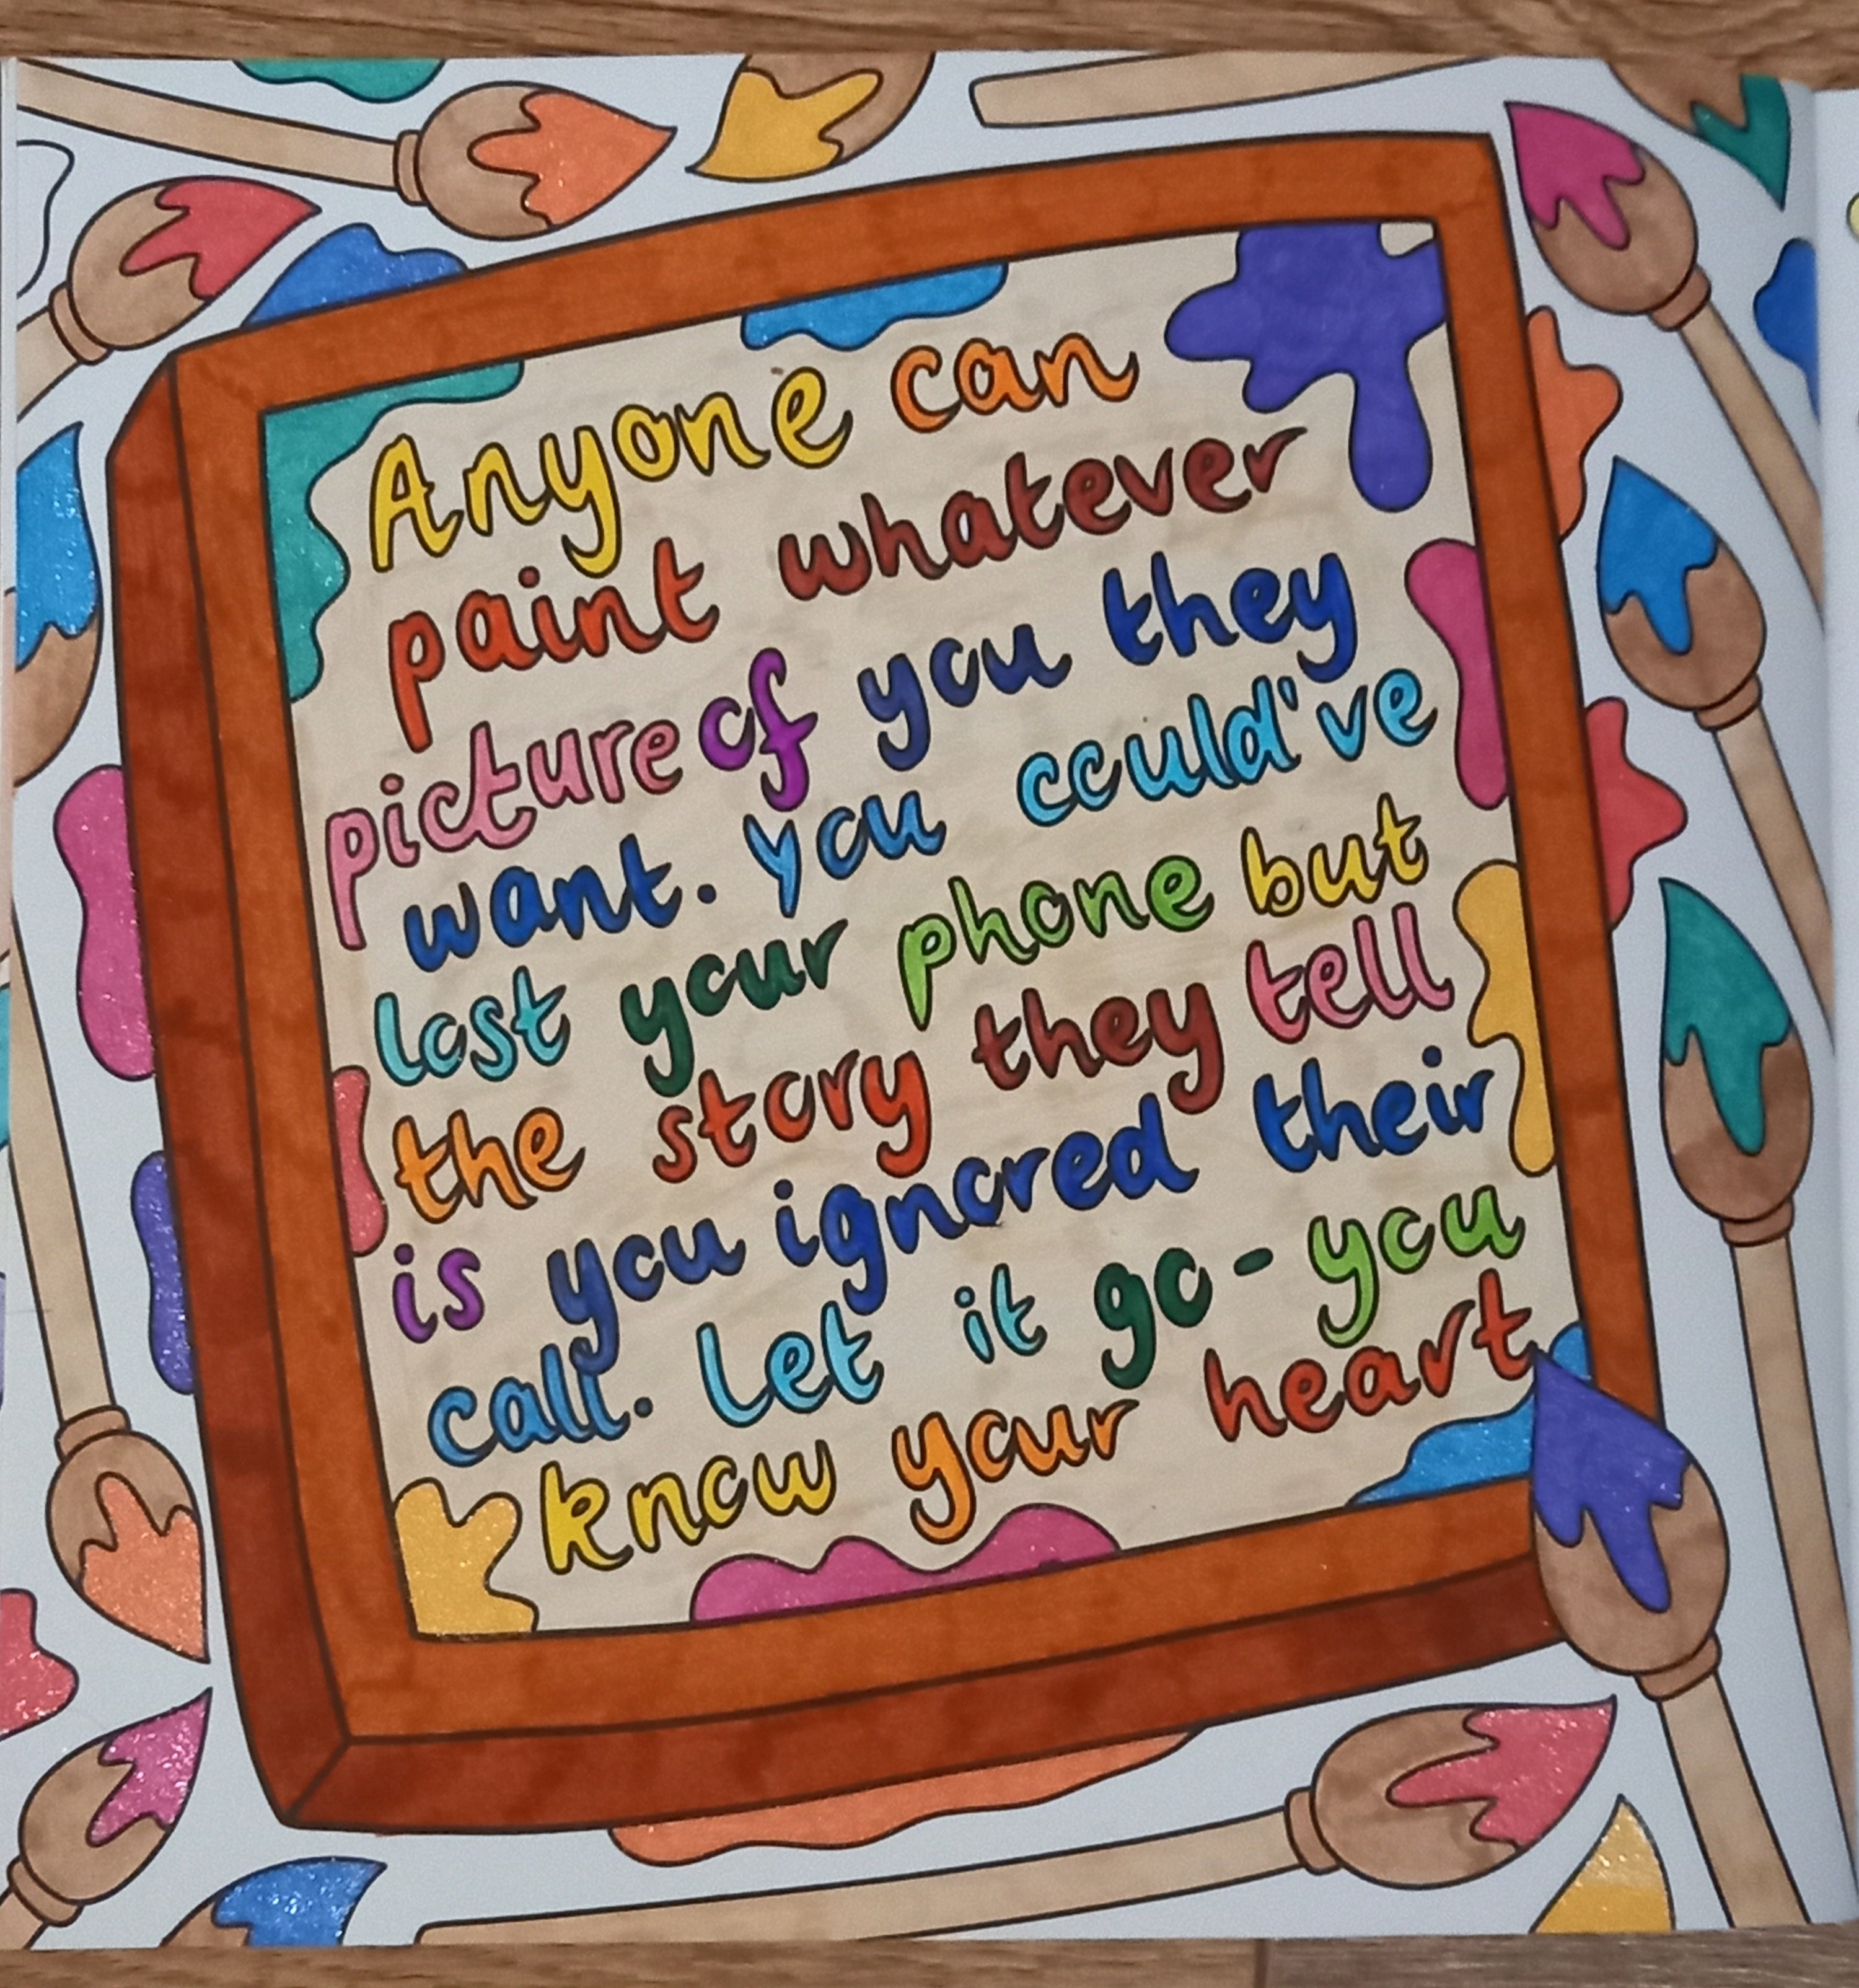 Anyone can
paint whatever
picture of you they
want. You could've
lost your phone but
the story they tell
is you ignored their
call. Let it go - you
know your heart